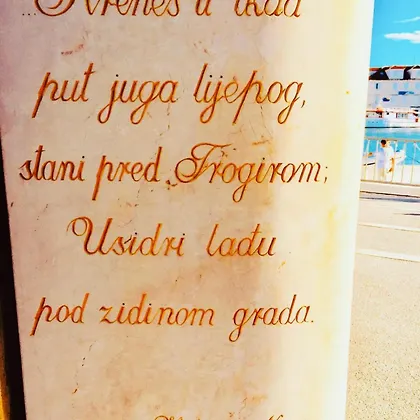 ...Kreneš li ikad
put juga lijepog,
stani pred Trogirom;
Usidri lađu
pod zidinom grada.